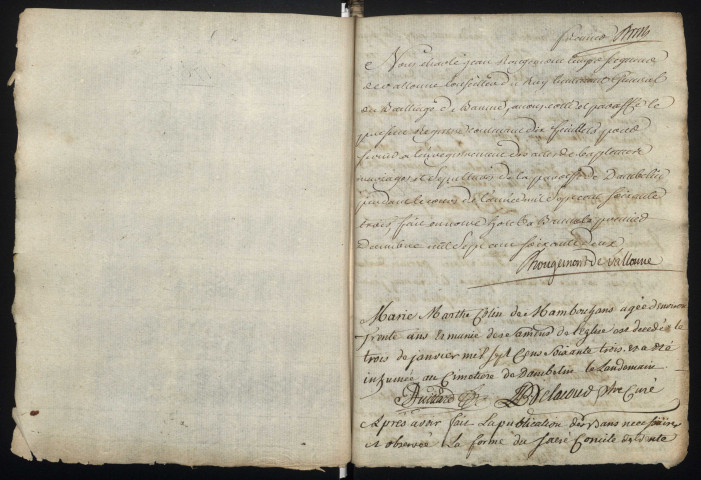 premier
Nous charle jean Rougemont
de vallonne Conseiller du Roy lieutenant General
du Bailliage de Baume, avons cotté et paraffé le
present Registre contenant dix feuillets pour
servir a l'enregistrement des actes de baptemes
mariages et sepultures de la paroisse de Dambelin
pendant le cours de l'année mil sept cent soixante
trois, fait en notre hotel a Baume le premier
decembre mil sept cent soixante deux
Rougemont de vallonne
Marie Marthe Colin de Mambouhans agée d'environ
trente ans munie des sacrements de l'Eglise est decedée le
trois de janvier mil sept cens soixante trois et a été
inhumée au Cimetiere de Dambelin le landemain
Delacour Ptre Curé
Apres avoir fait la publication des Bans necessaires
et observée la forme du sacré Concile de Trente